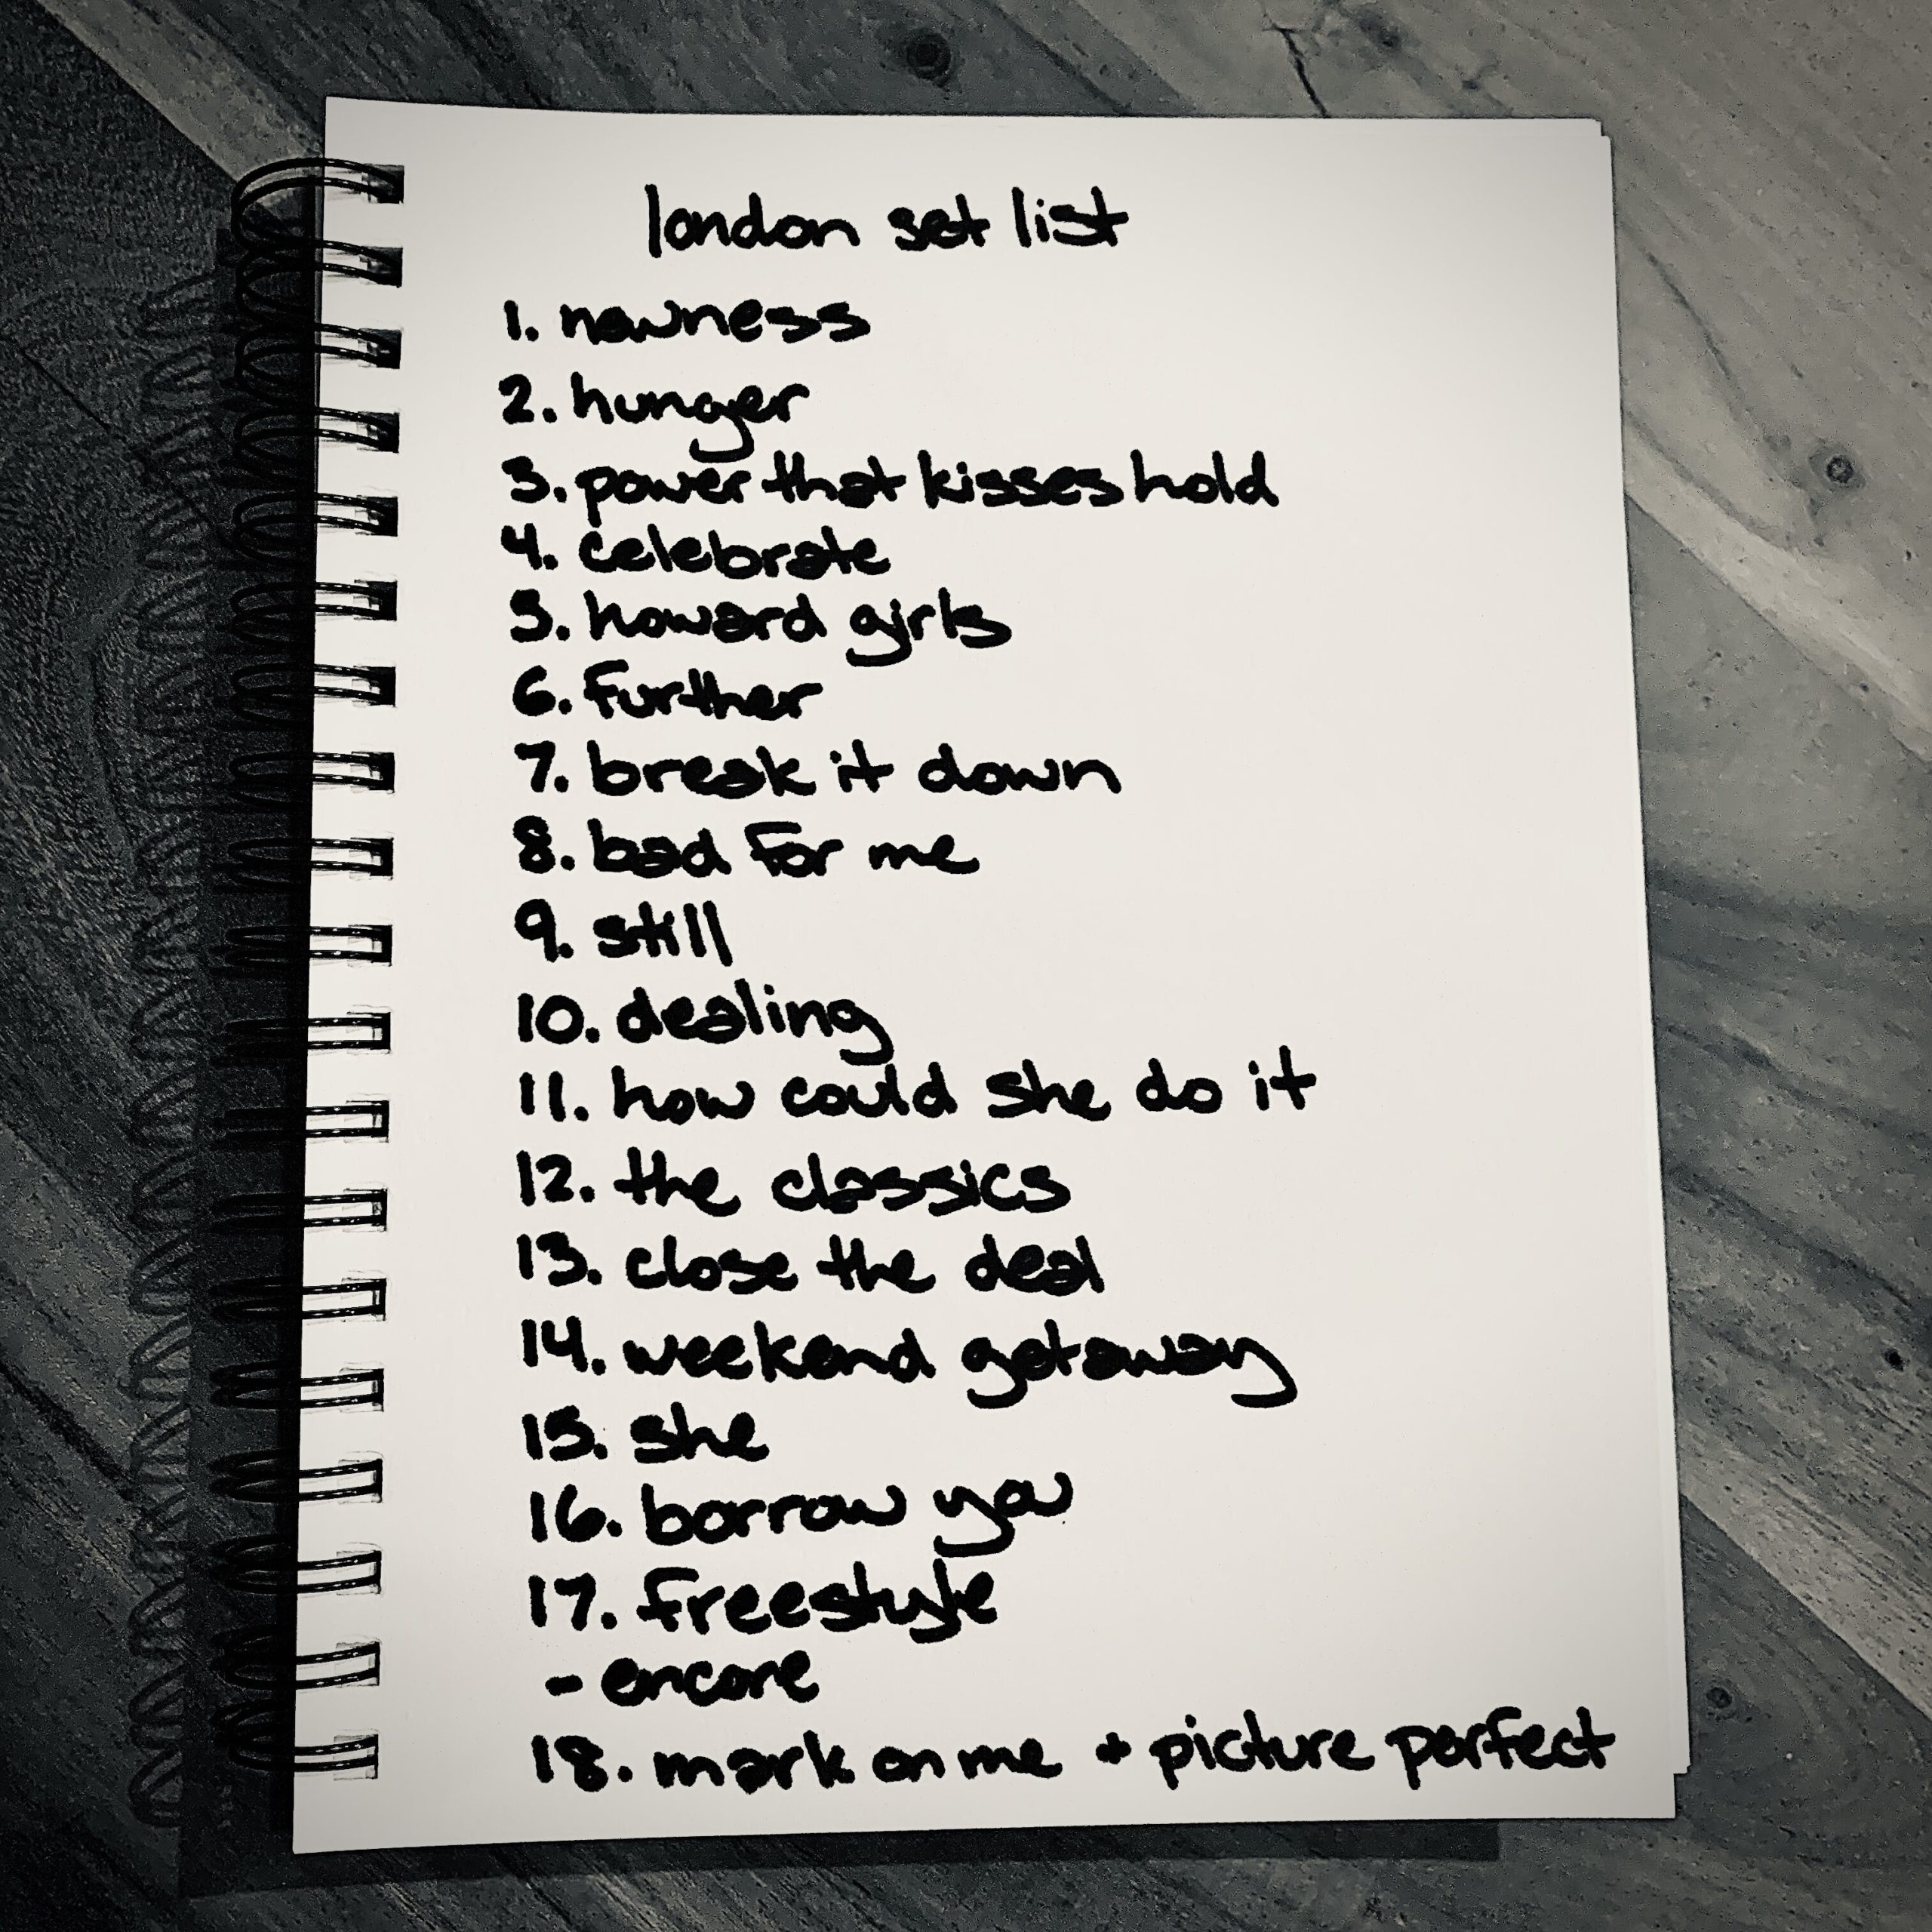 london set list
1. newness
2. hunger
3. power that kisses hold
4. celebrate
5. howard girls
6. further
7. break it down
8. bad for me
9. still
10. dealing
11. how could she do it
12. the classics
13. close the deal
14. weekend getaway
15. she
16. borrow you
17. freestyle
- encore
18. mark on me + picture perfect